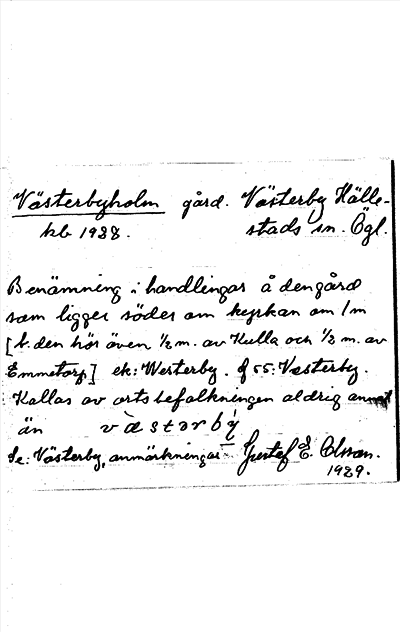 Västerbyholm gård. Västerby Hälle-
kb 1928. stads sn. Ögl.
Benämning i handlingar å den gård
som ligger söder om kyrkan om 1 m
[t. den hör även ½ m. av Kulla och ½ m. av
Emmetorp] ek: Westerby. Vesterby.
Kallas av ortsbefolkningen aldrig annat
än
Se: Västerby, anmärkningar Gustef E. Olsson.
1929.